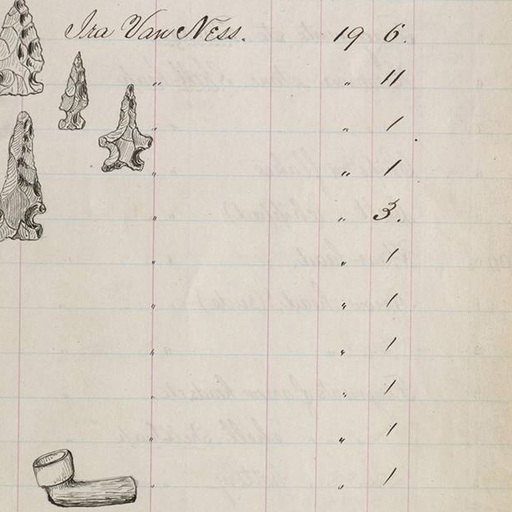 Ira Van Ness. 19 6.
" " 11
" " 1
" " 1
" " 3.
" " 1
" " 1
" " 1
" " 1
" " 1
" " 1